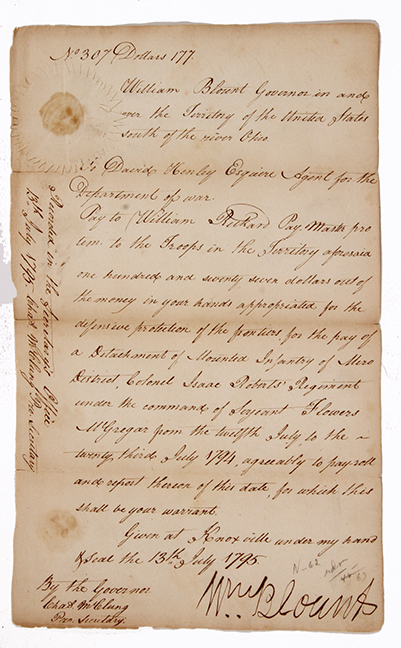 No 307 Dollars 177.
William Blount Governor in and
over the Territory of the United States
south of the river Ohio.
To David Henley Esquire Agent for the
Department of war.
Pay to William Rickard Pay Master pro
tem. to the Troops in the Territory aforesaid
one hundred and seventy seven dollars out of
the money in your hands appropriated for the
defensive protection of the frontiers, for the pay of
a Detachment of Mounted Infantry of Mero
District, Colonel Isaac Roberts' Regiment
under the command of Serjeant Flowers
McGregar from the twelfth July to the
twenty third July 1794, agreeably to pay roll
and report thereon of this date, for which this
shall be your warrant.
Given at Knoxville under my hand
& seal the 13th July 1795
Wm Blount
By the Governor
Chas. McClung
Pro. Secretary.
Recorded in the Secretary's Office
13th July 1795. Chas McClung Pro. Secretary
N-62
63